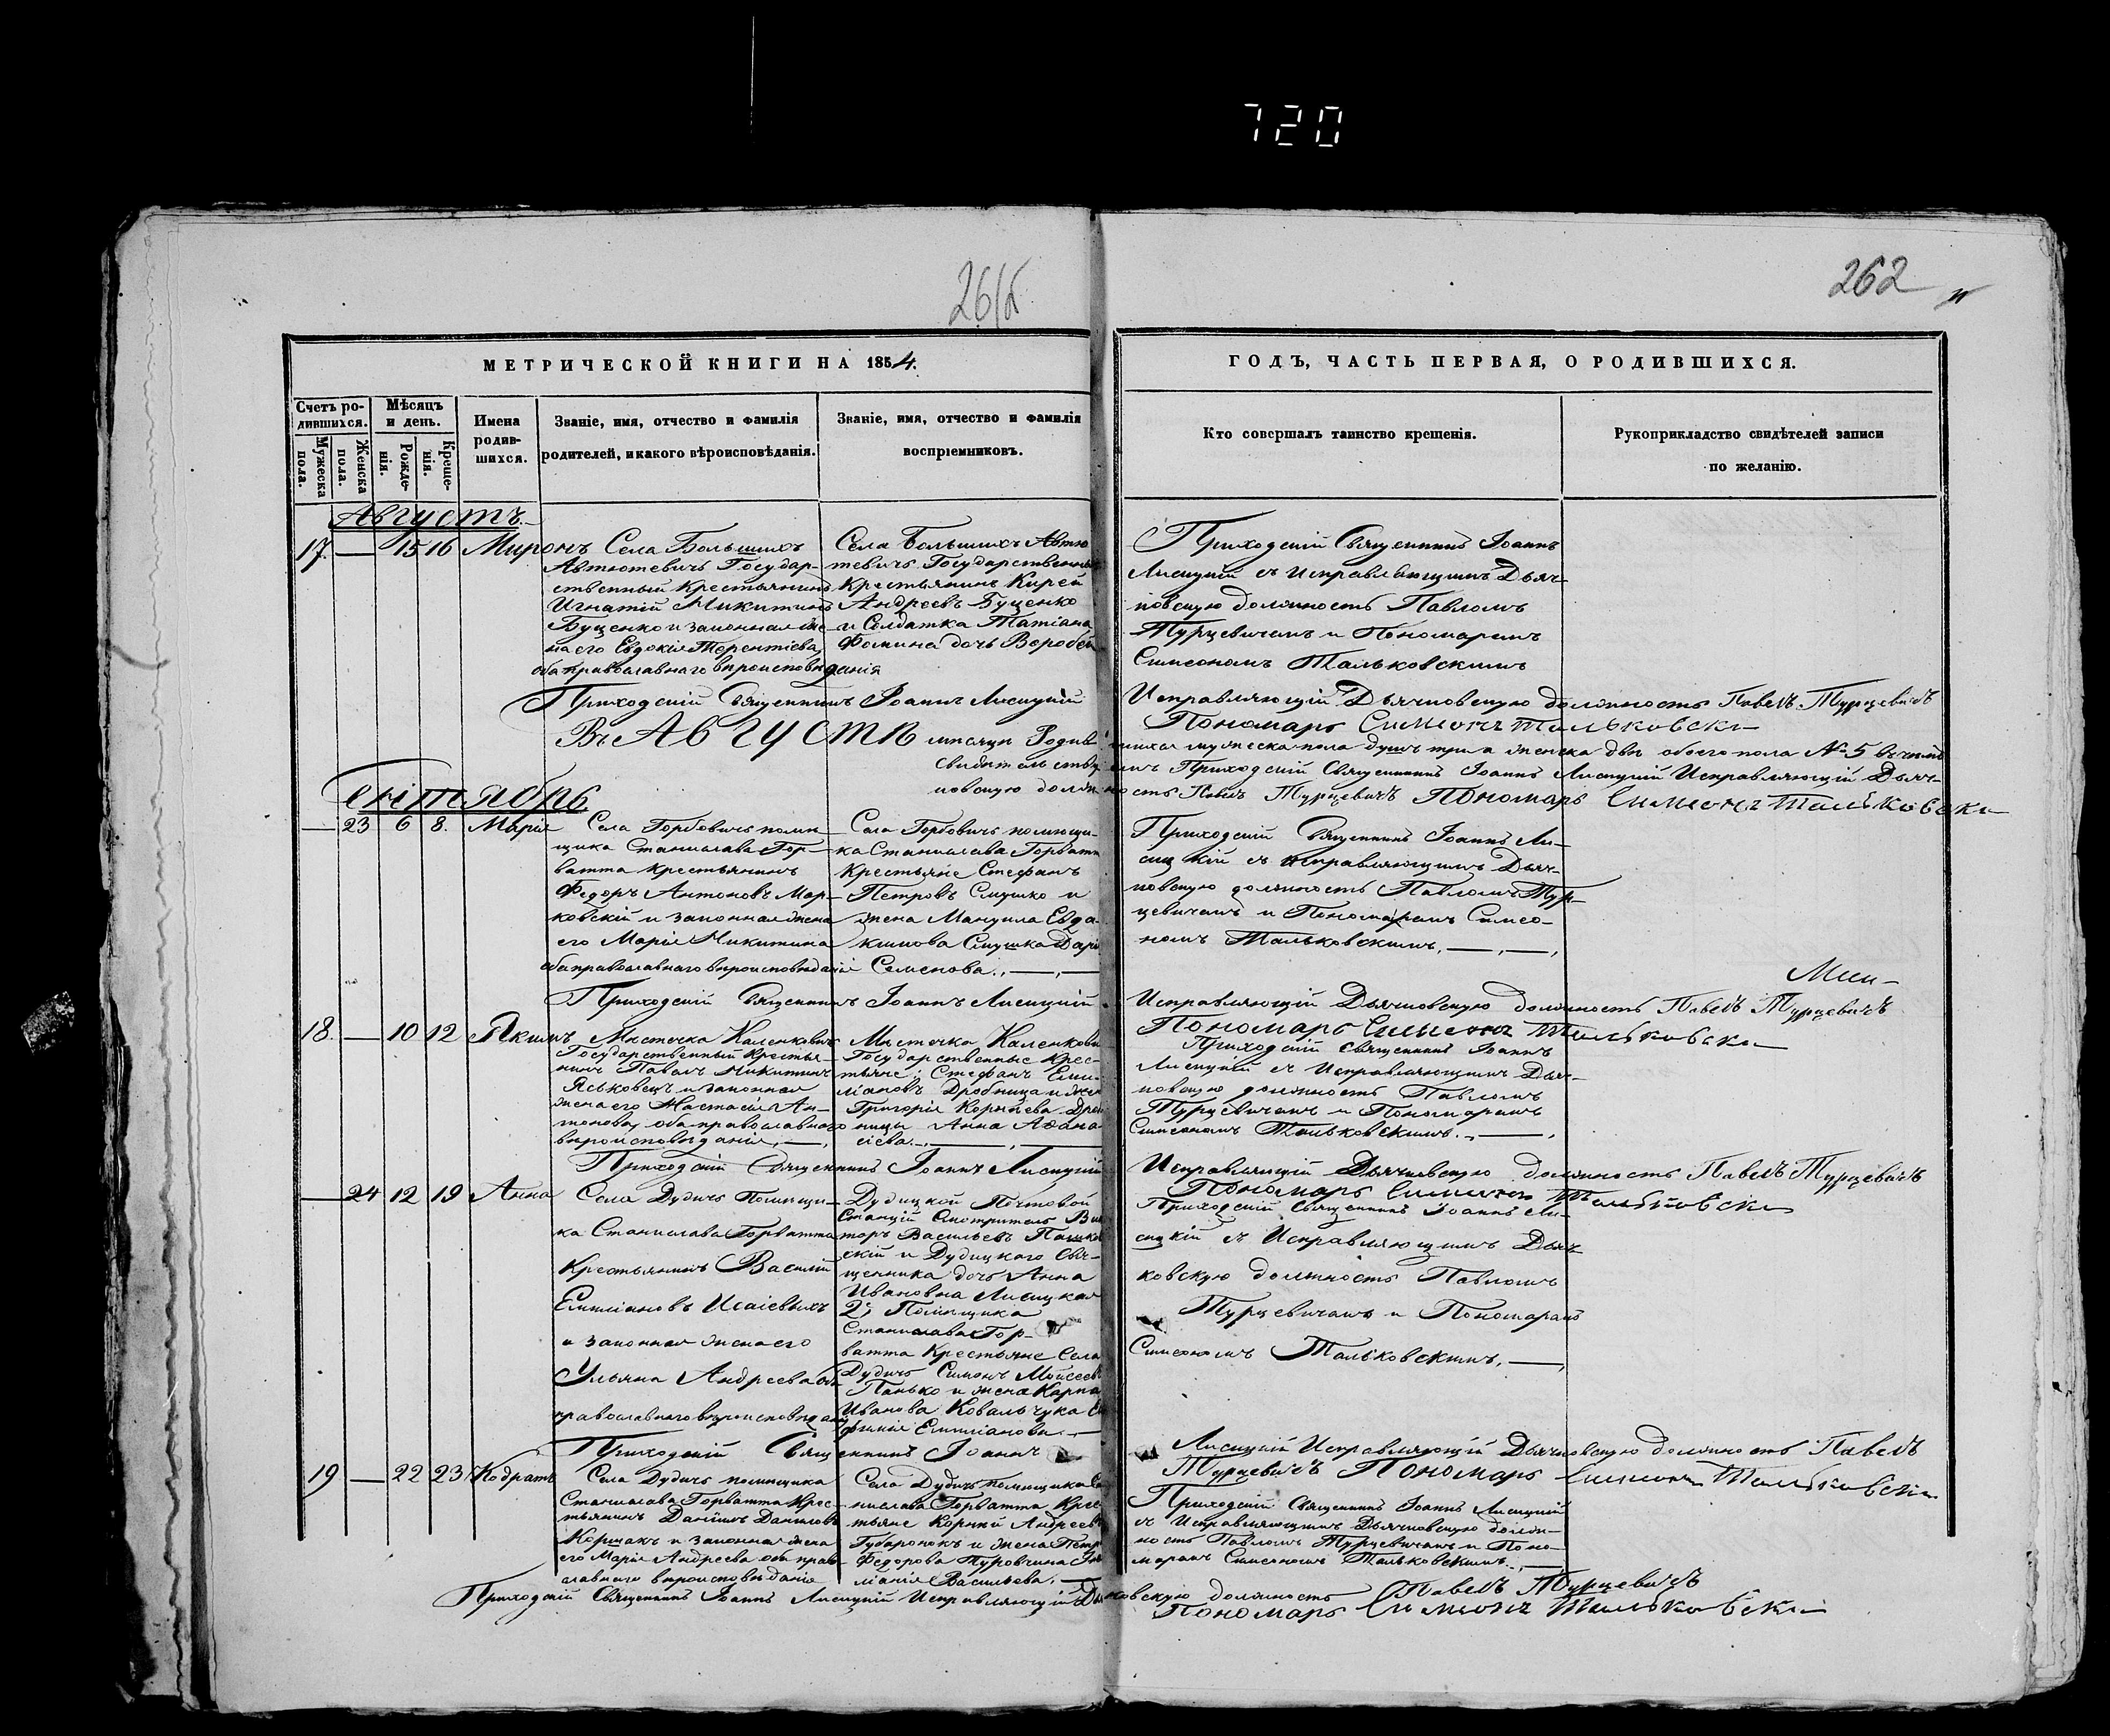 720
262
МЕТРИЧЕСКОЙ КНИГИ НА 1854.
ГОДЪ, ЧАСТЬ ПЕРВАЯ, О РОДИВШИХСЯ.
Счетъ родившихся.
Мужеска пола.
Женска пола.
Мѣсяцъ и день.
Рожденія.
Крещенія.
Имена родившихся.
Званіе, имя, отчество и фамилія
родителей, и какого вѣроисповѣданія.
Званіе, имя, отчество и фамилія
воспріемниковъ.
Кто совершалъ таинство крещенія.
Рукоприкладство свидѣтелей записи
по желанію.
Августъ
17. — 15 16 Миронъ
Села Большихъ
Автютевичъ Государ-
ственный Крестьянинъ
Игнатій Микитинъ
Буценко и законная же-
на его Евдокія Терентіева,
оба православнаго вѣроисповѣданія
Села Большихъ Автю
тевичъ Государственный
Крестьянинъ Кирей
Андреевъ Буценко
и Солдатка Татіана
Фомина дочь Воробей
Приходскій Священникъ Іоаннъ
Лисицкій съ Исправляющимъ Дьяч-
ковскую должность Павломъ
Турцевичемъ и Пономаремъ
Симеономъ Тальковскимъ
Приходскій Священникъ Іоаннъ Лисицкій Исправляющій Дьячковскую должность Павелъ Турцевичъ
Пономарь Симеонъ Тальковски
Въ Августѣ мѣсяцѣ Родившихся мужеска пола душъ три и женска двѣ обоего пола № 5
Приходскій Священникъ Іоаннъ Лисицкій Исправляющій Дьяч-
ковскую должность Павелъ Турцевичъ Пономарь Симеонъ Тальковски
Сентябрь
— 23 6 8. Марія
Села Горбовичъ помѣ-
щика Станислава Гор-
ватта крестьянинъ
Федоръ Антоновъ Мар-
ковскій и законная жена
его Марія Никитина
оба православнаго вѣроисповѣданія
Села Горбовичъ помѣщи-
ка Станислава Горватта
Крестьяне Стефанъ
Петровъ Смушко и
жена Мануила Евда-
кимова Смушка Дарія
Семенова.
Приходскій Священникъ Іоаннъ Ли-
сицкій съ исправляющимъ Дьяч-
ковскую должность Павломъ Тур-
цевичемъ и Пономаремъ Симео-
номъ Тальковскимъ.
Приходскій Священникъ Іоаннъ Лисицкій Исправляющій Дьячковскую должность Павелъ Турцевичъ
Пономарь Симеонъ Тальковски
18. — 10 12 Якимъ
Мѣстечка Каленковичъ
Государственный Крестья-
нинъ Павелъ Никитинъ
Яськовецъ и законная
жена его Настасія Ан-
тонова, оба православнаго
вѣроисповѣданія.
Мѣстечка Каленкови
Государственные Крес-
тьяне: Стефанъ Еми-
ліановъ Дробница и жена
Григорія Корнѣева Дроб
ницы Анна Афана
сіева.
Приходскій Священникъ Іоаннъ
Лисицкій съ Исправляющимъ Дьяч-
ковскую должность Павломъ
Турцевичемъ и Пономаремъ
Симеономъ Тальковскимъ.
Приходскій Священникъ Іоаннъ Лисицкій Исправляющій Дьячковскую должность Павелъ Турцевичъ
Пономарь Симеонъ Тальковски
— 24 12 19 Анна
Села Дудичъ Помѣщи-
ка Станислава Горватта
Крестьянинъ Василій
Емиліановъ Исаіевыхъ
и законная жена его
Ульяна Андреева оба
православнаго вѣроисповѣданія
Дудицкой Почтовой
Станціи Смотритель Вик
торъ Васильевъ
скій и Дудицкаго Свя-
щенника дочь Анна
Ивановна Лисицкая
2, Помѣщика
Станислава Гор-
ватта Крестьяне Села
Дудичъ Симонъ Мойсеевъ
Панько и жена Карпа
Иванова Ковальчука
Емиліанова.
Приходскій Священникъ Іоаннъ Ли-
сицкій съ Исправляющимъ Дьяч-
ковскую должность Павломъ
Турцевичемъ и Пономаремъ
Симеономъ Тальковскимъ.
Приходскій Священникъ Іоаннъ Лисицкій Исправляющій Дьячковскую должность Павелъ
Турцевичъ Пономарь Симеонъ Тальковски
19 — 22 23 Кодратъ
Села Дудичъ помѣщика
Станислава Горватта Крес-
тьянинъ Даніилъ Даниловъ
Коршакъ и законная жена
его Марія Андреева оба право-
славнаго вѣроисповѣданія
Села Дудичъ помѣщика Ста
нислава Горватта Крес
тьяне Корній Андреевъ
Губаронокъ и жена Петра
Федорова Туровчина
Васильева.
Приходскій Священникъ Іоаннъ Лисицкій
съ Исправляющимъ Дьячковскую долж-
ность Павломъ Турцевичемъ и Поно-
маремъ Симеономъ Тальковскимъ.
Приходскій Священникъ Іоаннъ Лисицкій Исправляющій Дьячковскую должность Павелъ Турцевичъ
Пономарь Симеонъ Тальковски